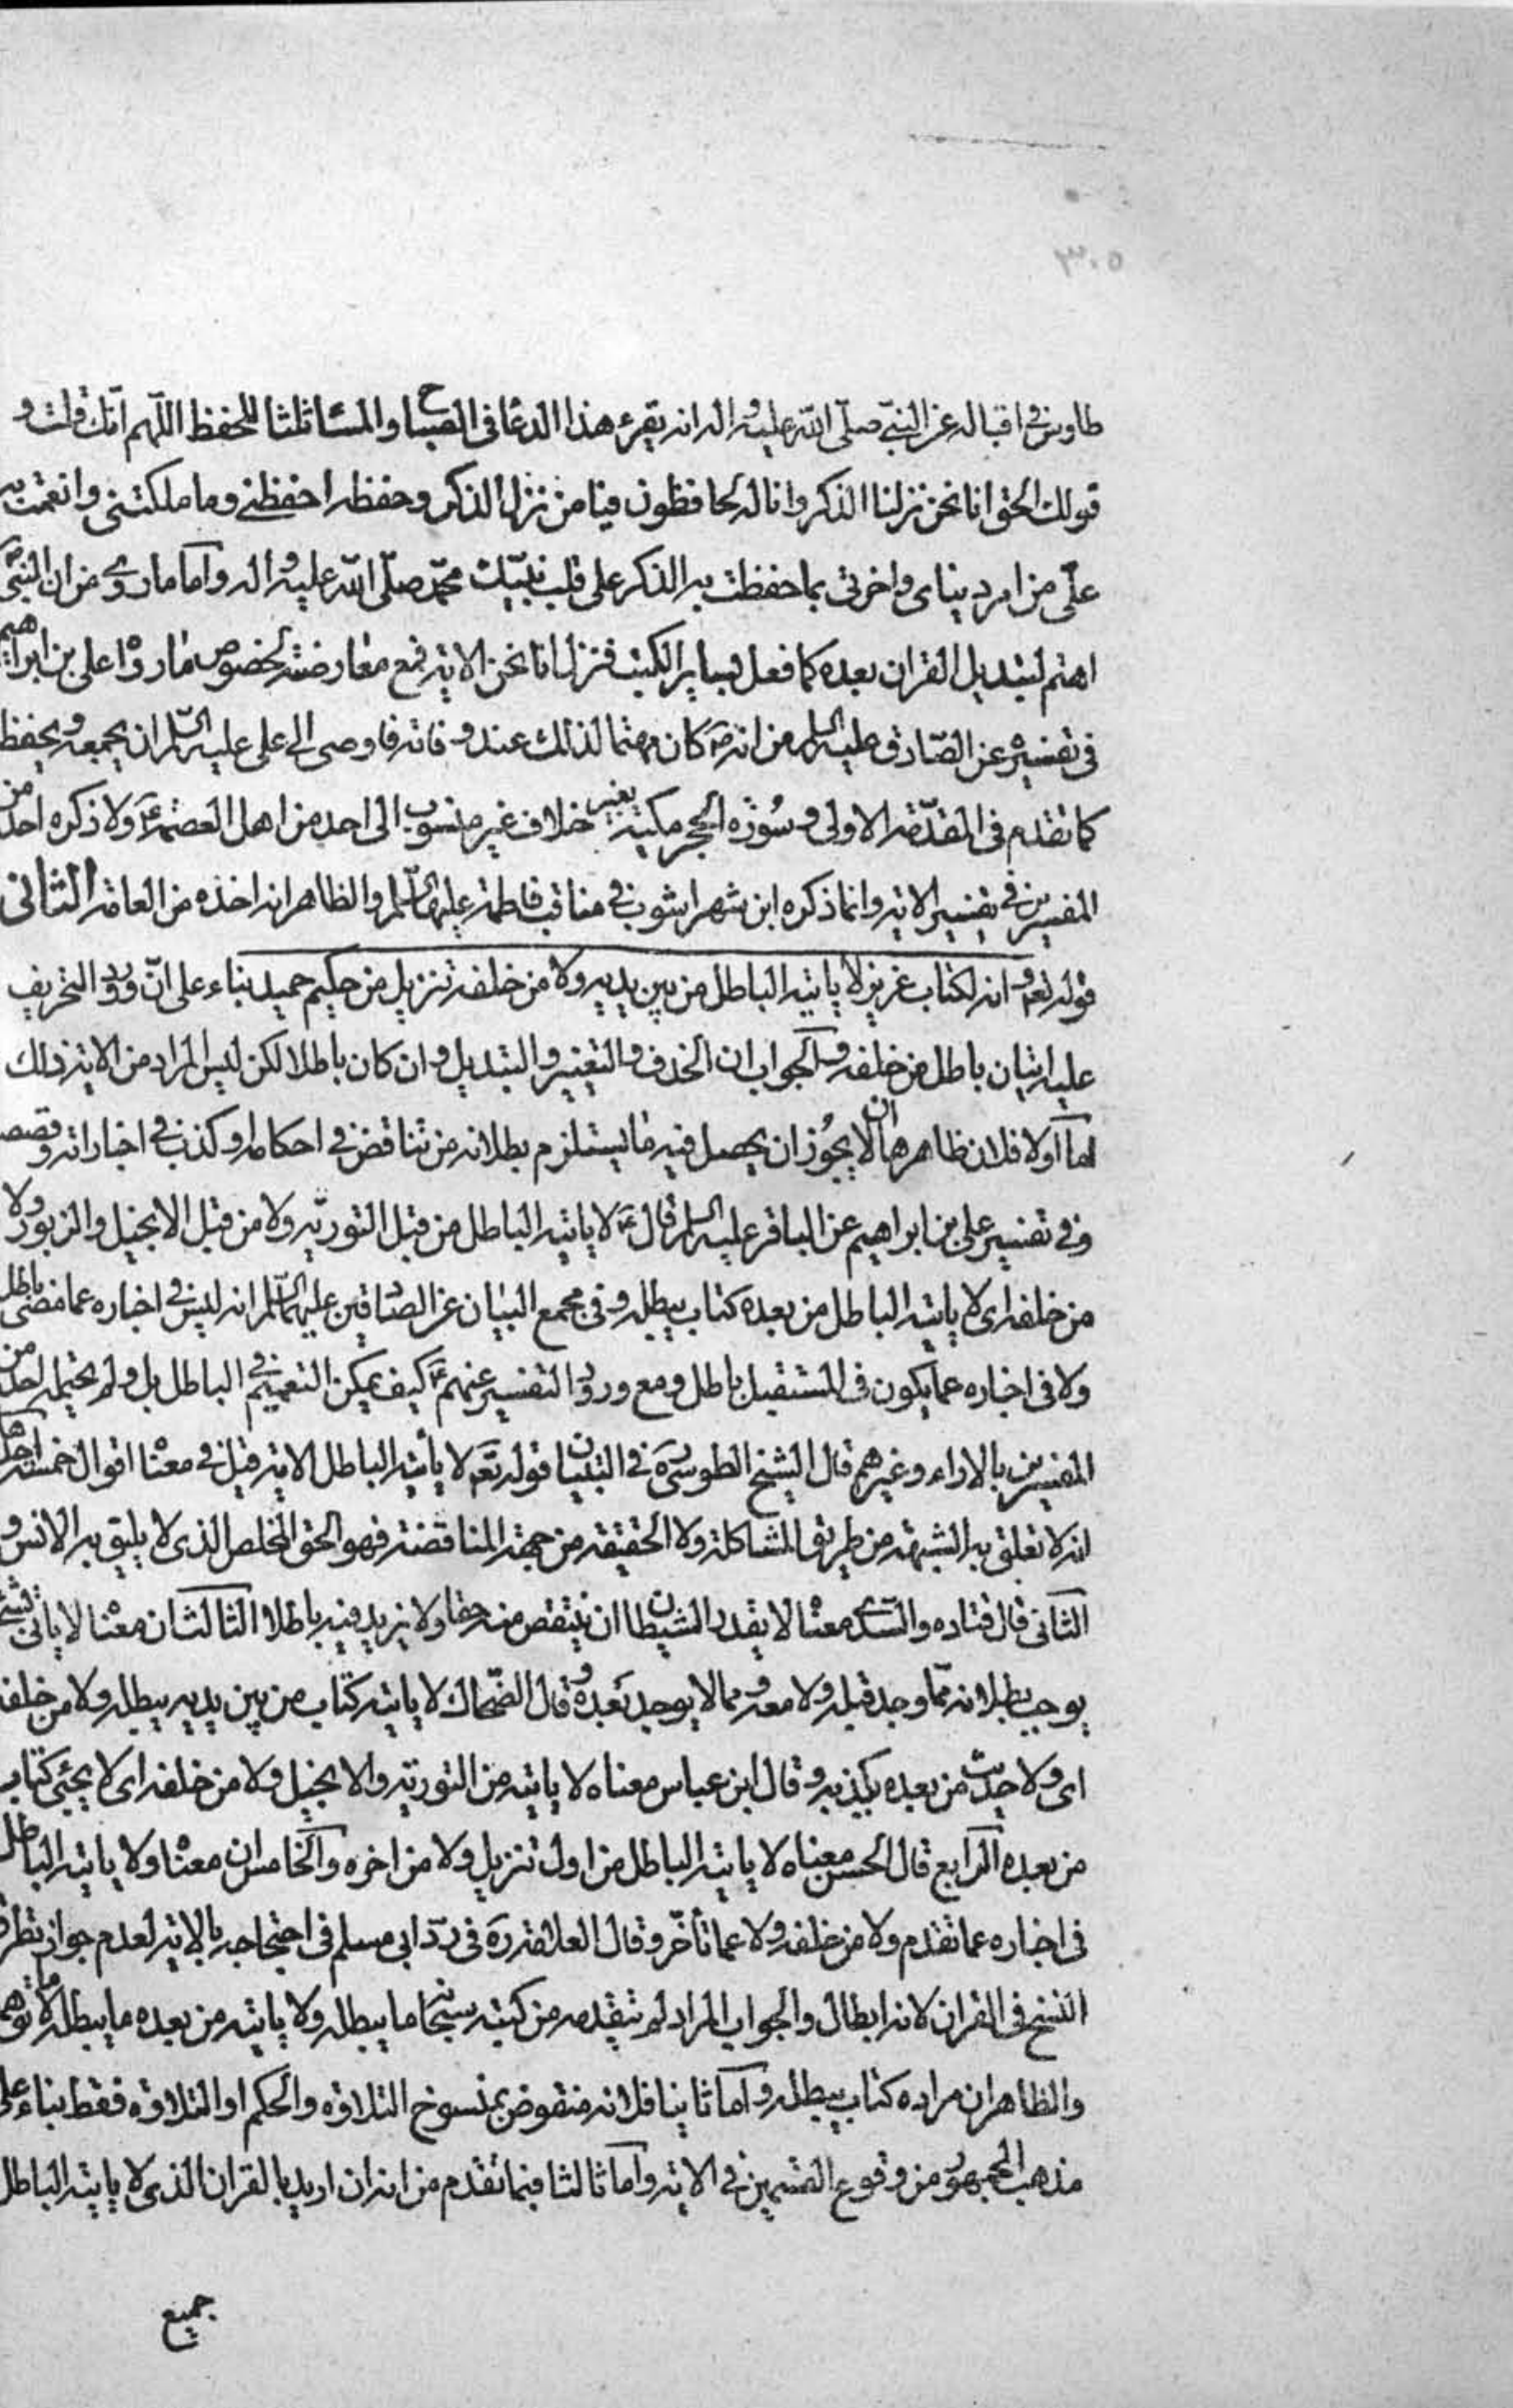 ٣٠٥
طاوس في اقباله عن النبي صلى الله عليه واله انه يقرء هذا الدعا في الصبح والمسا ثلثا للحفظ اللهم انك قلت و
قولك الحق انا نحن نزلنا الذكر وانا له لحافظون فيا من نزل الذكر وحفظه احفظني وما ملكتني وانعمت به
علي من امر دنياى واخرتى بما حفظت به الذكر على قلب نبيك محمد صلى الله عليه واله واما ما روى من ان النبي
اهتم لتبديل القران بعده كما فعل بساير الكتب فنزل انا نحن الاية فمع معارضته لخصوص ما رواه على بن ابراهيم
فى تفسيره عن الصادق عليه السلم من انه ص كان مهتما لذلك عند وفاته فاوصى الى على عليه السلم ان يجمعه ويحفظ
كما تقدم فى المقدمة الاولى وسورة الحجر مكية بغير خلاف غير منسوب الى احد من اهل العصمة ع ولا ذكره احد من
المفسرين في تفسير الاية وانما ذكره ابن شهراشوب في مناقب فاطمة عليها السلم والظاهر انه اخذه من العامة الثانى
قوله تعم وانه لكتاب عزيز لا ياتيه الباطل من بين يديه ولا من خلفه تنزيل من حكيم حميد بناء على ان ورود التحريف
عليه اتيان باطل من خلفه والجواب ان الحذف والتغيير والتبديل وان كان باطلا لكن ليس المراد من الاية ذلك
اما اولا فلان ظاهرها ان لا يجوز ان يحصل فيه ما يستلزم بطلانه من تناقض في احكامه او كذب في اخباراته وقصصه
وفي تفسير على بن ابراهيم عن الباقر عليه السلم قال ع لا ياتيه الباطل من قبل التورية ولا من قبل الانجيل والزبور ولا
من خلفه اى لا ياتيه الباطل من بعده كتاب يبطله وفي مجمع البيان عن الصادقين عليهما السلم انه ليس في اخباره عما مضى باطل
ولا فى اخباره عما يكون فى المستقبل باطل ومع ورود التفسير عنهم ع كيف يمكن التعميم في الباطل بل ولم يحتمله احد من
المفسرين بالاراء وغيرهم قال الشيخ الطوسى ره في التبيان قوله تعم لا يأتيه الباطل الاية قيل في معناه اقوال خمسة احدها
انه لا تعلق به الشبهة من طريق المشاكلة ولا الحقيقة من جهة المناقضة فهو الحق المخلص الذى لا يليق به الانس و
الثانى قال قتاده والسدى معناه لا يقدر الشيطان ان ينتقص منه حقا ولا يزيد فيه باطلا الثالث ان معناه لا ياتى بشئ
يوجب بطلانه مما وجد قبله ولا معه ومما لا يوجد بعده وقال الضحاك لا ياتيه كتاب من بين يديه يبطله ولا من خلفه
اى ولا حديث من بعده يكذبه وقال ابن عباس معناه لا ياتيه من التورية والانجيل ولا من خلفه اى لا يجئ كتاب
من بعده الرابع قال الحسن معناه لا ياتيه الباطل من اول تنزيل ولا من اخره والخامس ان معناه ولا ياتيه الباطل
فى اخباره عما تقدم ولا من خلفه ولا عما تأخر وقال العلامة ره فى رد ابى مسلم فى احتجاجه بالاية لعدم جواز تطرق
النسخ فى القران لانه ابطال والجواب المراد لم يتقدمه من كتبه سبحانه ما يبطله ولا ياتيه من بعده ما يبطله لا ما توهم
والظاهر ان مراده كتاب يبطله واما ثانيا فلانه منقوض بمنسوخ التلاوه والحكم او التلاوه فقط بناء على
مذهب الجمهور من وقوع القسمين في الاية واما ثالثا فبما تقدم من انه ان اريد بالقران الذى لا ياتيه الباطل
جميع